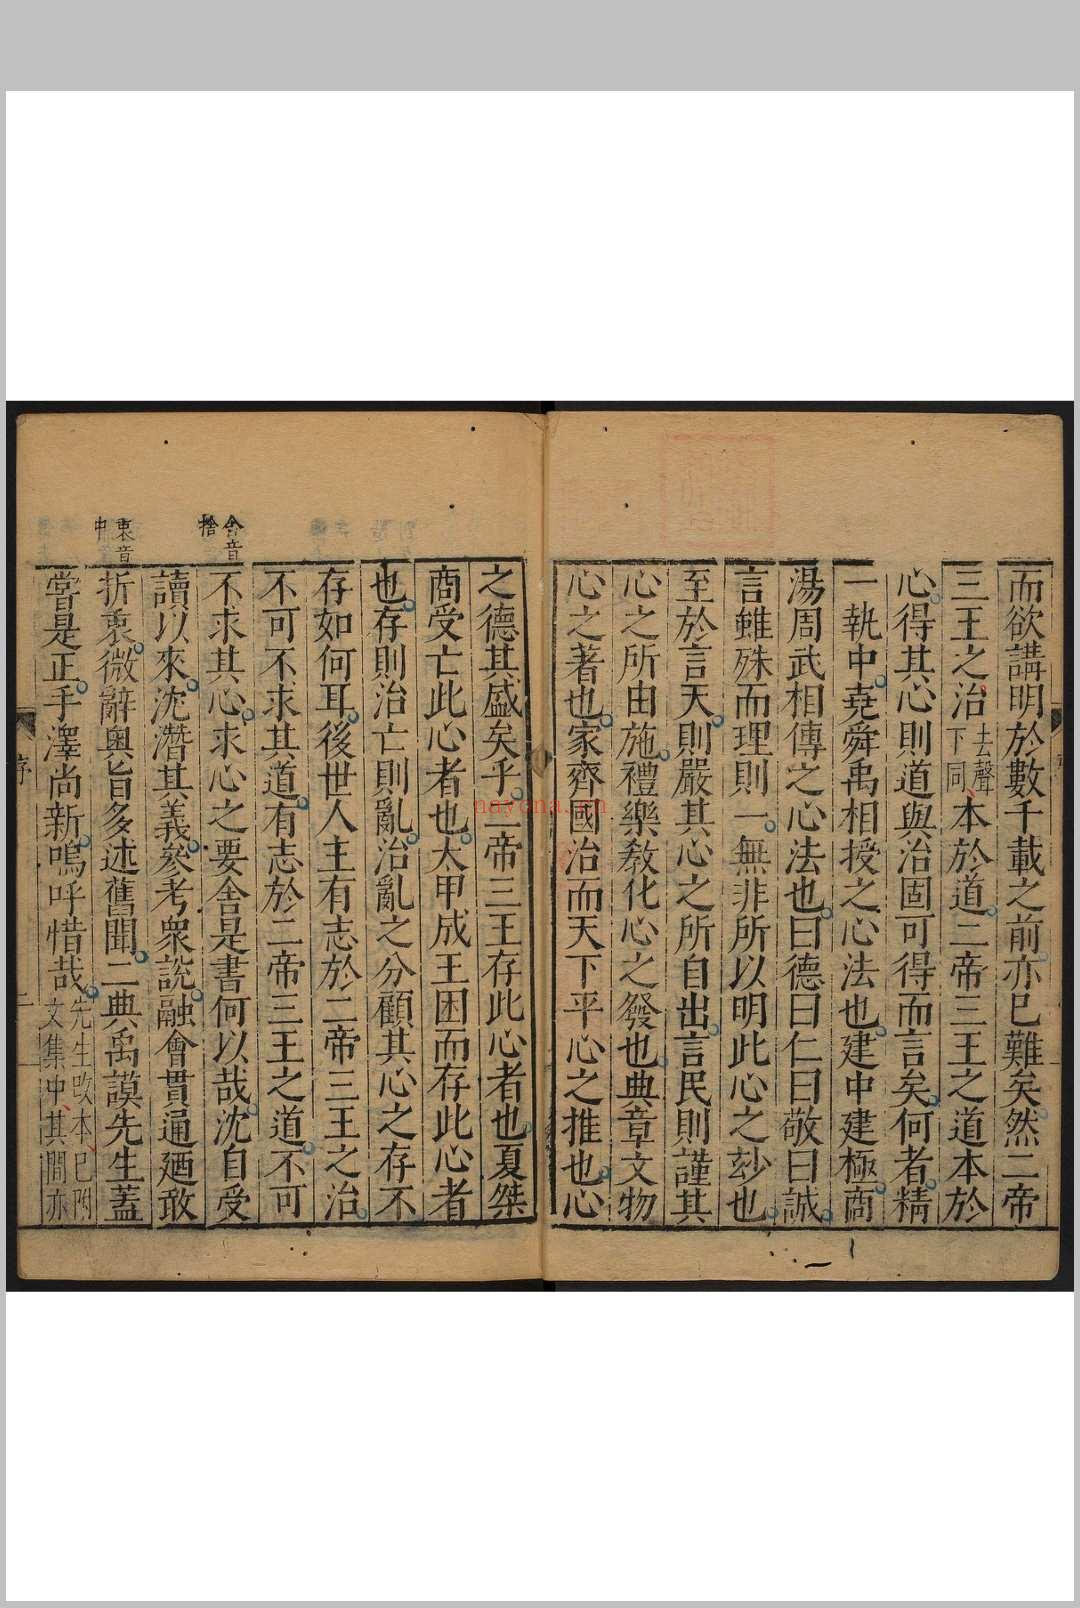 而欲講明於數千載之前亦已難矣然二帝
三王之治去聲下同本於道二帝三王之道本於
心得其心則道與治固可得而言矣何者精
一執中堯舜禹相授之心法也建中建極商
湯周武相傳之心法也曰德曰仁曰敬曰誠
言雖殊而理則一無非所以明此心之玅也
至於言天則嚴其心之所自出言民則謹其
心之所由施禮樂敎化心之發也典章文物
心之著也家齊國治而天下平心之推也心
之德其盛矣乎二帝三王存此心者也夏桀
商受亡此心者也太甲成王困而存此心者
也存則治亡則亂治亂之分顧其心之存不
存如何耳後世人主有志於二帝三王之治
不可不求其道有志於二帝三王之道不可
舍音捨
不求其心求心之要舍是書何以哉沈自受
讀以來沈潛其義參考衆說融會貫通廼敢
衷音中
折衷微辭奧旨多述舊聞二典禹謨先生蓋
嘗是正手澤尚新嗚呼惜哉先生改本已附文集中其間亦
序
nayona.cn